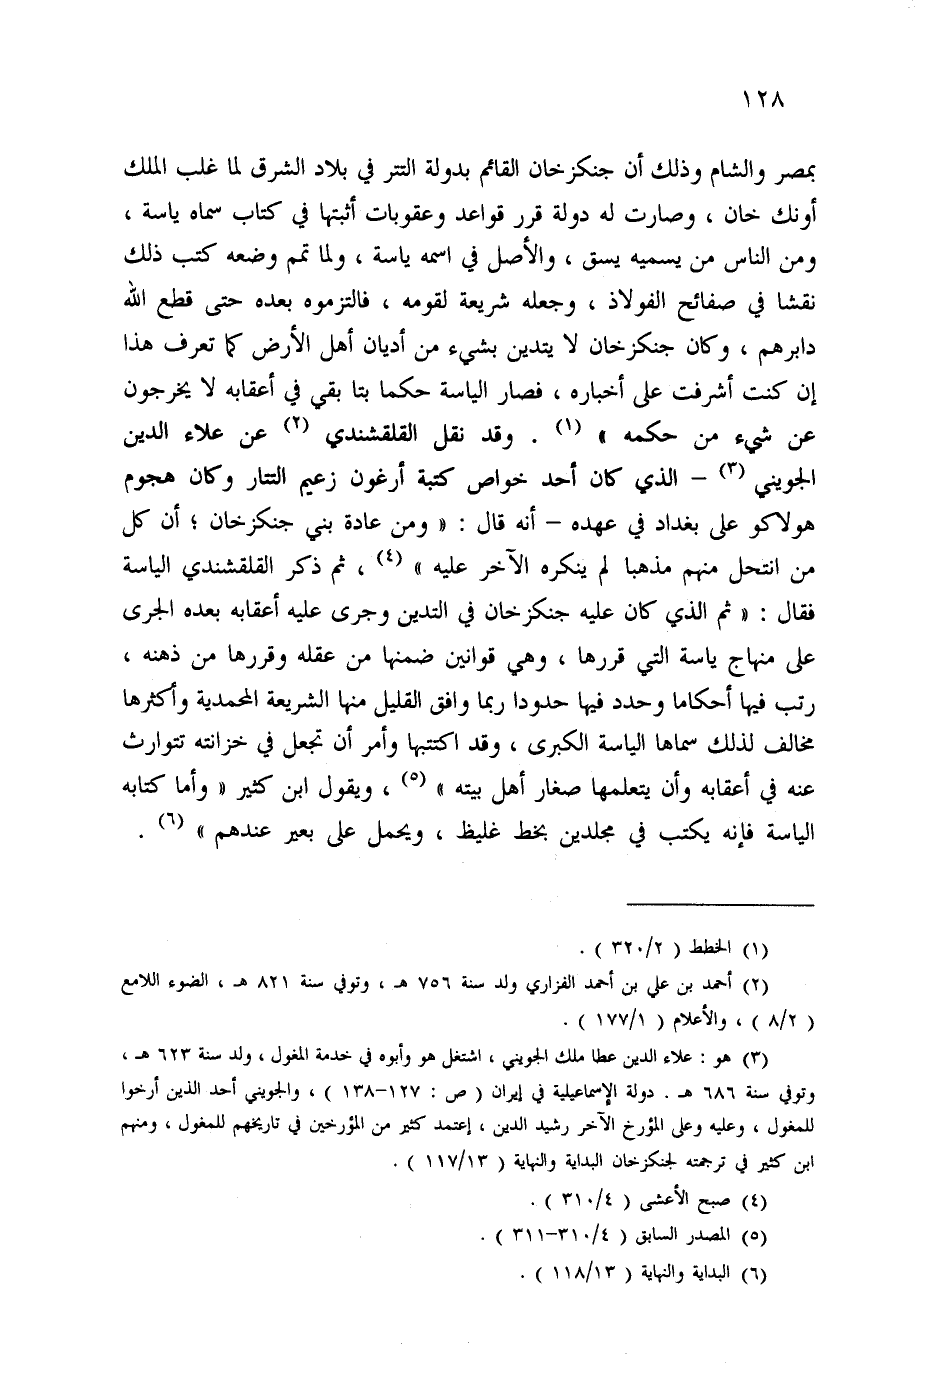 ١٢٨
بمصر والشام وذلك أن جنكزخان القائم بدولة التتر في بلاد الشرق لما غلب الملك
أونك خان ، وصارت له دولة قرر قواعد وعقوبات أثبتها في كتاب سماه ياسة ،
ومن الناس من يسميه يسق ، والأصل في اسمه ياسة ، ولما تمم وضعه كتب ذلك
نقشا في صفائح الفولاذ ، وجعله شريعة لقومه ، فالتزموه بعده حتى قطع الله
دابرهم ، وكان جنكزخان لا يتدين بشيء من أديان أهل الأرض كما تعرف هذا
إن كنت أشرفت على أخباره ، فصار الياسة حكما بتا بقي في أعقابه لا يخرجون
عن شيء من حكمه » (١) . وقد نقل القلقشندي (٢) عن علاء الدين
الجويني (٣) – الذي كان أحد خواص كتبة أرغون زعيم التتار وكان هجوم
هولاكو على بغداد في عهده – أنه قال : « ومن عادة بني جنكزخان ؛ أن كل
من انتحل منهم مذهبا لم ينكره الآخر عليه » (٤) ، ثم ذكر القلقشندي الياسة
فقال : « ثم الذي كان عليه جنكزخان في التدين وجرى عليه أعقابه بعده الجرى
على منهاج ياسة التي قررها ، وهي قوانين ضمنها من عقله وقررها من ذهنه ،
رتب فيها أحكاما وحدد فيها حدودا ربما وافق القليل منها الشريعة المحمدية وأكثرها
مخالف لذلك سماها الياسة الكبرى ، وقد اكتتبها وأمر أن تجعل في خزانته تتوارث
عنه في أعقابه وأن يتعلمها صغار أهل بيته » (٥) ، ويقول ابن كثير « وأما كتابه
الياسة فإنه يكتب في مجلدين بخط غليظ ، ويحمل على بعير عندهم » (٦) .
(١) الخطط ( ٣٢٠/٢ ) .
(٢) أحمد بن علي بن أحمد الفزاري ولد سنة ٧٥٦ هـ ، وتوفي سنة ٨٢١ هـ ، الضوء اللامع
( ٨/٢ ) ، والأعلام ( ١٧٧/١ ) .
(٣) هو : علاء الدين عطا ملك الجويني ، اشتغل هو وأبوه في خدمة المغول ، ولد سنة ٦٢٣ هـ ،
وتوفي سنة ٦٨٦ هـ . دولة الإسماعيلية في إيران ( ص : ١٢٧–١٣٨ ) ، والجويني أحد الذين أرخوا
للمغول ، وعليه وعلى المؤرخ الآخر رشيد الدين ، إعتمد كثير من المؤرخين في تاريخهم للمغول ، ومنهم
ابن كثير في ترجمته لجنكزخان البداية والنهاية ( ١١٧/١٣ ) .
(٤) صبح الأعشى ( ٣١٠/٤ ) .
(٥) المصدر السابق ( ٣١٠/٤–٣١١ ) .
(٦) البداية والنهاية ( ١١٨/١٣ ) .